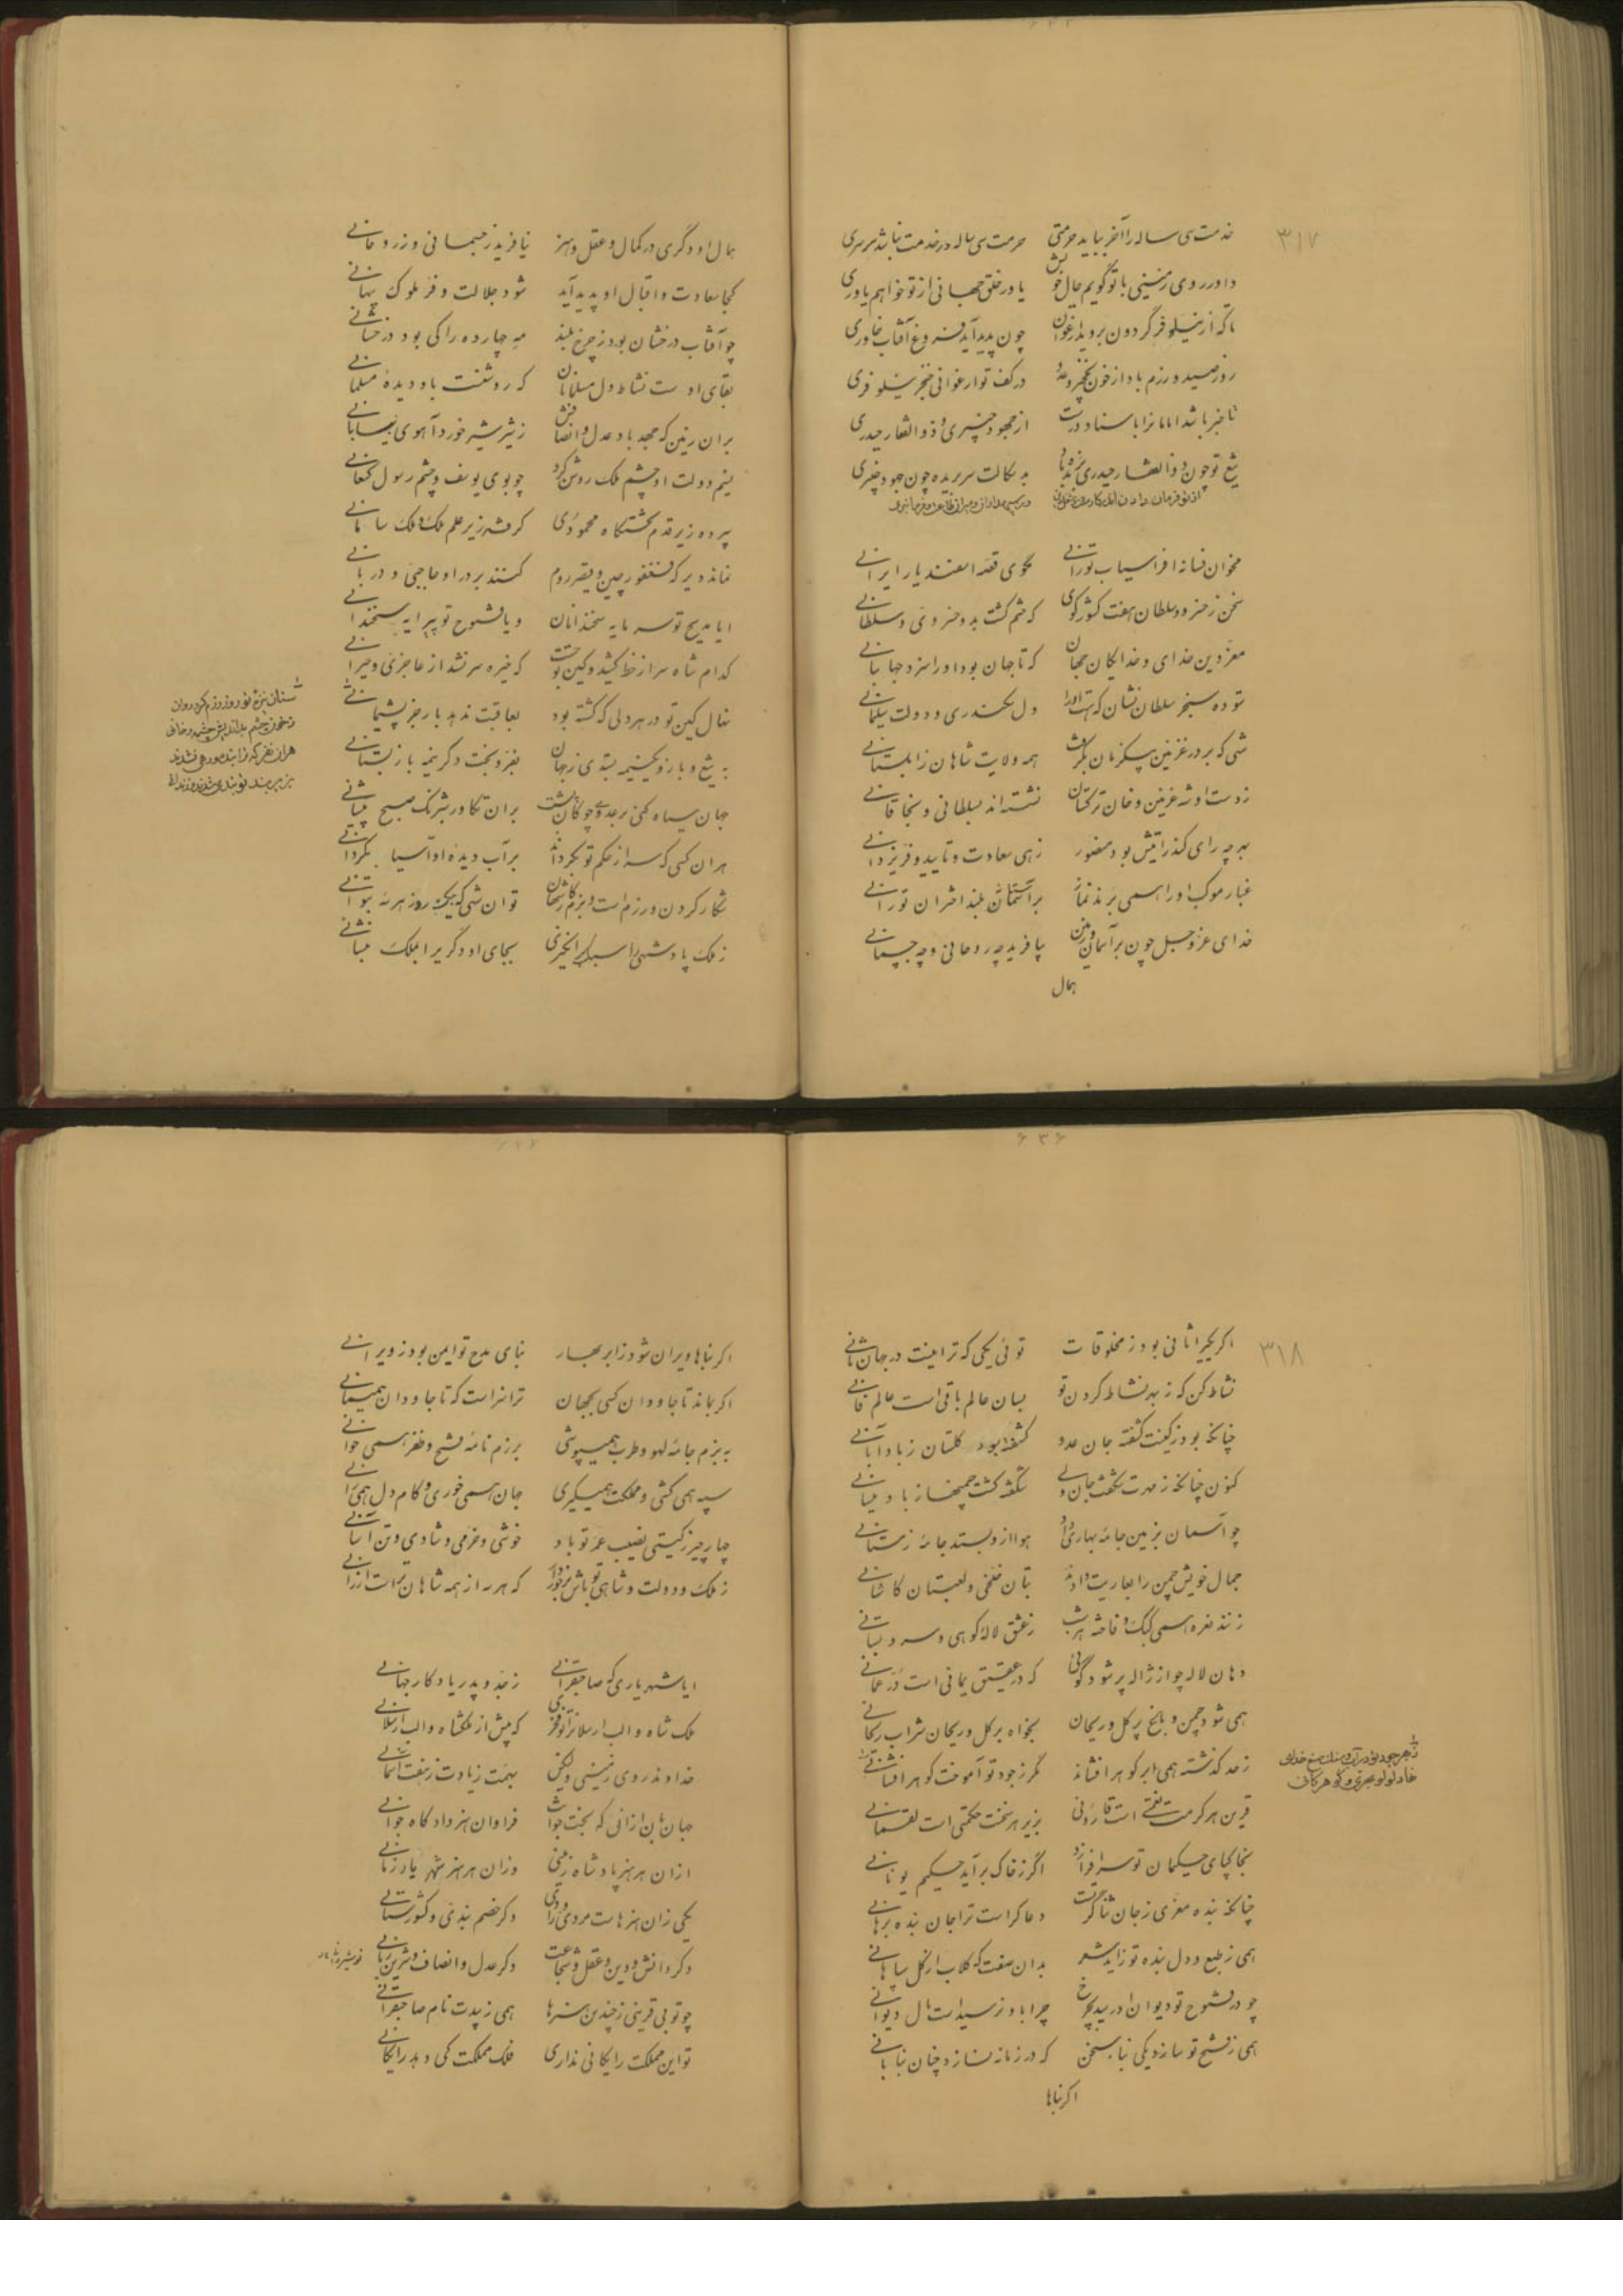 ۳۱۷
خدمت سی ساله را آخر بباید حرمتی حرمت سی ساله در خدمت نباشد سرسری
داور روی زمینی با تو گویم حال خویش یاور خلق جهانی از تو خواهم یاوری
تا که از نیلوفر گردون بروید ارغوان چون پدید آید فروغ آفتاب خاوری
روز صید و رزم باد از خون نخجیر و عدو در کف تو ارغوانی خنجر نیلوفری
تا خبر باشد امامانرا باسناد درست از جهود خیبری و ذوالفقار حیدری
تیغ تو چون ذوالفقار حیدری بزدوده باد بدسگالت سر بریده چون جهود خیبری
مخوان فسانه افراسیاب تورانی مگوی قصه اسفندیار ایرانی
سخن ز خسرو و سلطان هفت کشور گوی که ختم گشت بدو خسروی و سلطانی
معز دین خدای و خدایگان جهان که تا جهان بود او را سزد جهانبانی
ستوده سنجر سلطان نشان که هست او را دل سکندری و دولت سلیمانی
شهی که بر در غزنین بیک زمان بگرفت همه ولایت شاهان زابلستانی
ز دست او شه غزنین و خان ترکستان نشسته‌اند بسلطانی و بخاقانی
بهر چه رای کند رایتش بود منصور زهی سعادت و تایید و فر یزدانی
غبار موکب او را همی برند نماز بر آستانش بلند اختران نورانی
خدای عز و جل چون بر آسمان و زمین بیافرید چه روحانی و چه جسمانی
همال
همال او دگری در کمال و عقل و هنر نیافرید ز جسمانی و ز روحانی
کجا سعادت و اقبال او پدید آید شود جلالت و فر ملوک پنهانی
چو آفتاب درخشان بود ز چرخ بلند مه چهارده را کی بود درخشانی
بقای اوست نشاط دل مسلمانان که روشنست باو دیده مسلمانی
بران زمین که بجهد باد عدل و انصافش ز شیر شیر خورد آهوی بیابانی
نسیم دولت او چشم ملک روشن کرد چو بوی یوسف و چشم رسول کنعانی
سپرده زیر قدم تختگاه محمودی گرفته زیر علم ملک و ملک سامانی
نماند دیر که فغفور چین و قیصر روم کنند بر در او حاجبی و دربانی
ایا مدیح تو سرمایه سخندانان و یا فتوح تو پیرایه سخندانی
کدام شاه سر از خط کشید و کین تو جست که خیره سر نشد از عاجزی و حیرانی
نهال کین تو در هر دلی که کشته بود بعاقبت ندهد بار جز پشیمانی
به تیغ و بازو یک نیمه بستدی ز جهان بفر و بخت دگر نیمه باز بستانی
جهان سیاه کنی بر عدو چو گاه
بران تکاور شبرنگ صبح پیشانی
هران کسی که سر از حکم تو بگرداند بر آب دیده او آسیا بگردانی
شکار کردن و رزم است و بزم کار شهان تو آن شهی که بیک روز هر سه بتوانی
ز ملک پادشهی را سبک برانگیزی بجای او دگری را بملک بنشانی
۶۳۶
۳۱۸
اگر یکی را ثانی بود ز مخلوقات توئی یکی که ترا نیست در جهان ثانی
نشاط کن که ز بهر نشاط کردن تو بسان عالم باقی است عالم فانی
چنانکه بود ز کینت کفته جان عدو کشفته بود گلستان ز باد آبانی
کنون چنانکه ز مهرت شکفت جان ولی شکفته گشت چمنها ز باد نیسانی
چو آسمان بزمین جامه بهاری داد هوا ازو بستد جامه زمستانی
جمال خویش چمن را بعاریت دادند بتان خلخی و لعبتان کاشانی
زنند نعره همی کبک و فاخته هر شب ز عشق لاله کوهی و سرو بستانی
دهان لاله چو از ژاله پر شود گوئی که در عقیق یمانی است در عمانی
همی شود چمن و باغ پر گل و ریحان بخواه بر گل و ریحان شراب ریحانی
ز حد گذشته همی ابر گوهر افشاند مگر ز جود تو آموخت گوهر افشانی
قرین هر کرمت نعمتی است قارونی بزیر هر سخنت حکمتی است لقمانی
بخاکپای حکیمان تو سرافرازد اگر ز خاک برآید حکیم یونانی
چنانکه بنده معزی ز جان ثناگر تست دعاگر است ترا جان بنده برهانی
همی ز طبع و دل بنده تو زاید شعر بدان صفت که گلاب از گل سپاهانی
چو در فتوح تو دیوان او رسید بچرخ چرا باو نرسیدست مال دیوانی
همی ز فتح تو سازد یکی بنا بسخن که در زمانه نسازد چنان بنا بانی
اگر بناها
اگر بناها ویران شود ز ابر بهار بنای مدح تو ایمن بود ز ویرانی
اگر بماند تا جاودان کسی بجهان ترا سزاست که تا جاودان همیمانی
به بزم جامه لهو و طرب همیپوشی برزم نامه فتح و ظفر همی خوانی
سپه همی کشی و مملکت همیگیری جهان همی خوری و کام دل همی رانی
چهار چیز ز گیتی نصیب عمر تو باد خوشی و خرمی و شادی و تن آسانی
ز ملک و دولت و شاهی تو باش برخوردار که هر سه از همه شاهان تراست ارزانی
ایا شهریاری که صاحبقرانی ز جد و پدر یادگار جهانی
ملک شاه و الب ارسلان
که پیش از ملکشاه و الب ارسلانی
خداوند روی زمینی ولیکن بهمت زیادت ز هفت آسمانی
جهان زان ارزانی که بخت جوانت فراوان هنر داد گاه جوانی
ازان هر هنر پادشاه زمینی وزان هر هنر شهریار زمانی
یکی زان هنرهاست مردی و رادی دگر خصم بندی و کشورستانی
دگر دانش و دین و عقل و شجاعت دگر عدل و انصاف و شیرین زبانی
چو تو بی قرینی ز چندین هنرها همی زیبدت نام صاحبقرانی
تو این مملکت رایگانی نداری فلک مملکت کی دهد رایگانی